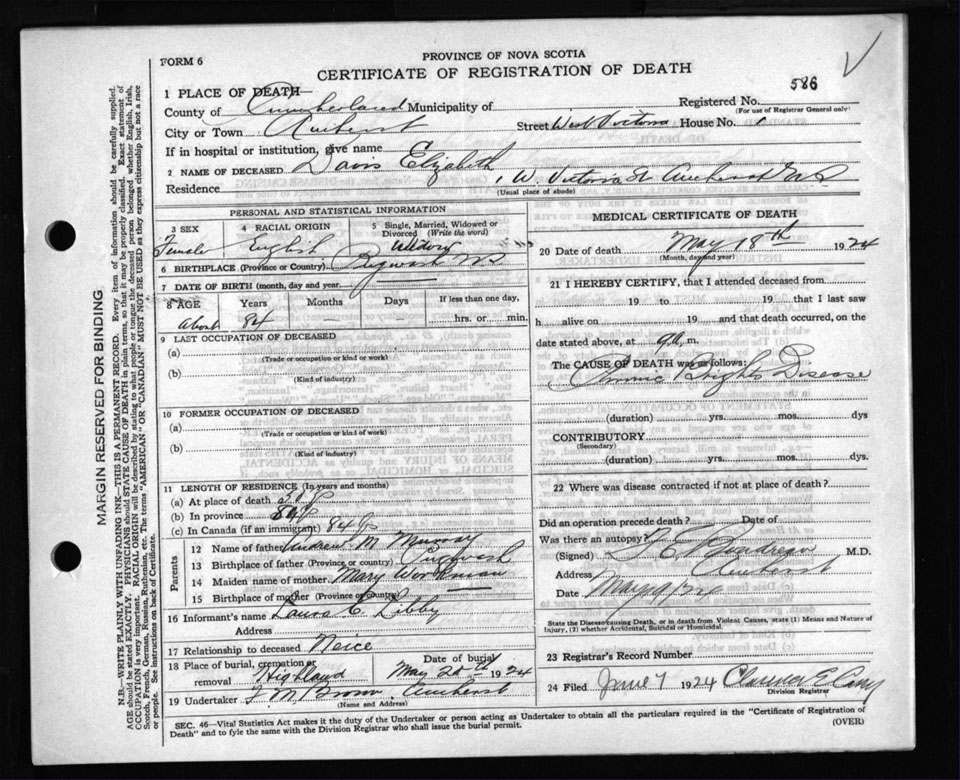 FORM 6
PROVINCE OF NOVA SCOTIA
CERTIFICATE OF REGISTRATION OF DEATH
1 PLACE OF DEATH—
County of Cumberland Municipality of Registered No. 586
(For use of Registrar General only)
City or Town Amherst Street West Victoria House No. 1
If in hospital or institution, give name
2 NAME OF DECEASED Davis Elizabeth
Residence 1 W. Victoria St Amherst N S
(Usual place of abode)
PERSONAL AND STATISTICAL INFORMATION
3 SEX 4 RACIAL ORIGIN 5 Single, Married, Widowed or Divorced (Write the word)
Female English Widow
6 BIRTHPLACE (Province or Country) Pugwash N S
7 DATE OF BIRTH (month, day and year)
8 AGE Years Months Days If less than one day,
About 84 — hrs. or min.
9 LAST OCCUPATION OF DECEASED
(a)
(Trade or occupation or kind of work)
(b)
(Kind of industry)
10 FORMER OCCUPATION OF DECEASED
(a)
(Trade or occupation or kind of work)
(b)
(Kind of industry)
11 LENGTH OF RESIDENCE (In years and months)
(a) At place of death
(b) In province
(c) In Canada (if an immigrant) 84
Parents
12 Name of father Andrew M Murray
13 Birthplace of father (Province or country) Pugwash
14 Maiden name of mother Mary
15 Birthplace of mother (Province or country)
16 Informant's name Laura C. Libby
Address
17 Relationship to deceased Neice
18 Place of burial, cremation or removal Highland Date of burial May 20th 1924
19 Undertaker F. M Brown Amherst
(Name and Address)
MEDICAL CERTIFICATE OF DEATH
20 Date of death May 18th 1924
(Month, day and year)
21 I HEREBY CERTIFY, that I attended deceased from
19 to 19 that I last saw
h alive on 19 and that death occurred, on the
date stated above, at m.
The CAUSE OF DEATH was as follows:
Brights Disease
(duration) yrs. mos. dys
CONTRIBUTORY
(Secondary)
(duration) yrs. mos. dys.
22 Where was disease contracted if not at place of death?
Did an operation precede death? Date of
Was there an autopsy?
(Signed) M.D.
Address Amherst
Date May
State the Disease causing Death, or in death from Violent Causes, state (1) Means and Nature of
Injury, (2) whether Accidental, Suicidal or Homicidal.
23 Registrar's Record Number
24 Filed June 7 1924 Clarence E
Division Registrar
SEC. 46—Vital Statistics Act makes it the duty of the Undertaker or person acting as Undertaker to obtain all the particulars required in the "Certificate of Registration of
Death" and to fyle the same with the Division Registrar who shall issue the burial permit. (OVER)
MARGIN RESERVED FOR BINDING
N.B.—WRITE PLAINLY WITH UNFADING INK—THIS IS A PERMANENT RECORD. Every item of information should be carefully supplied.
AGE should be stated EXACTLY. PHYSICIANS should STATE CAUSE OF DEATH in plain terms, so that it may be properly classified. Exact statement of
OCCUPATION is very important. RACIAL ORIGIN will be described by stating to what people or tongue the deceased person belonged whether English, Irish,
Scotch, French, German, Russian, Ruthenian, etc. The terms "AMERICAN" OR "CANADIAN" MUST NOT BE USED as they express citizenship but not a race
or people. See instructions on back of Certificate.